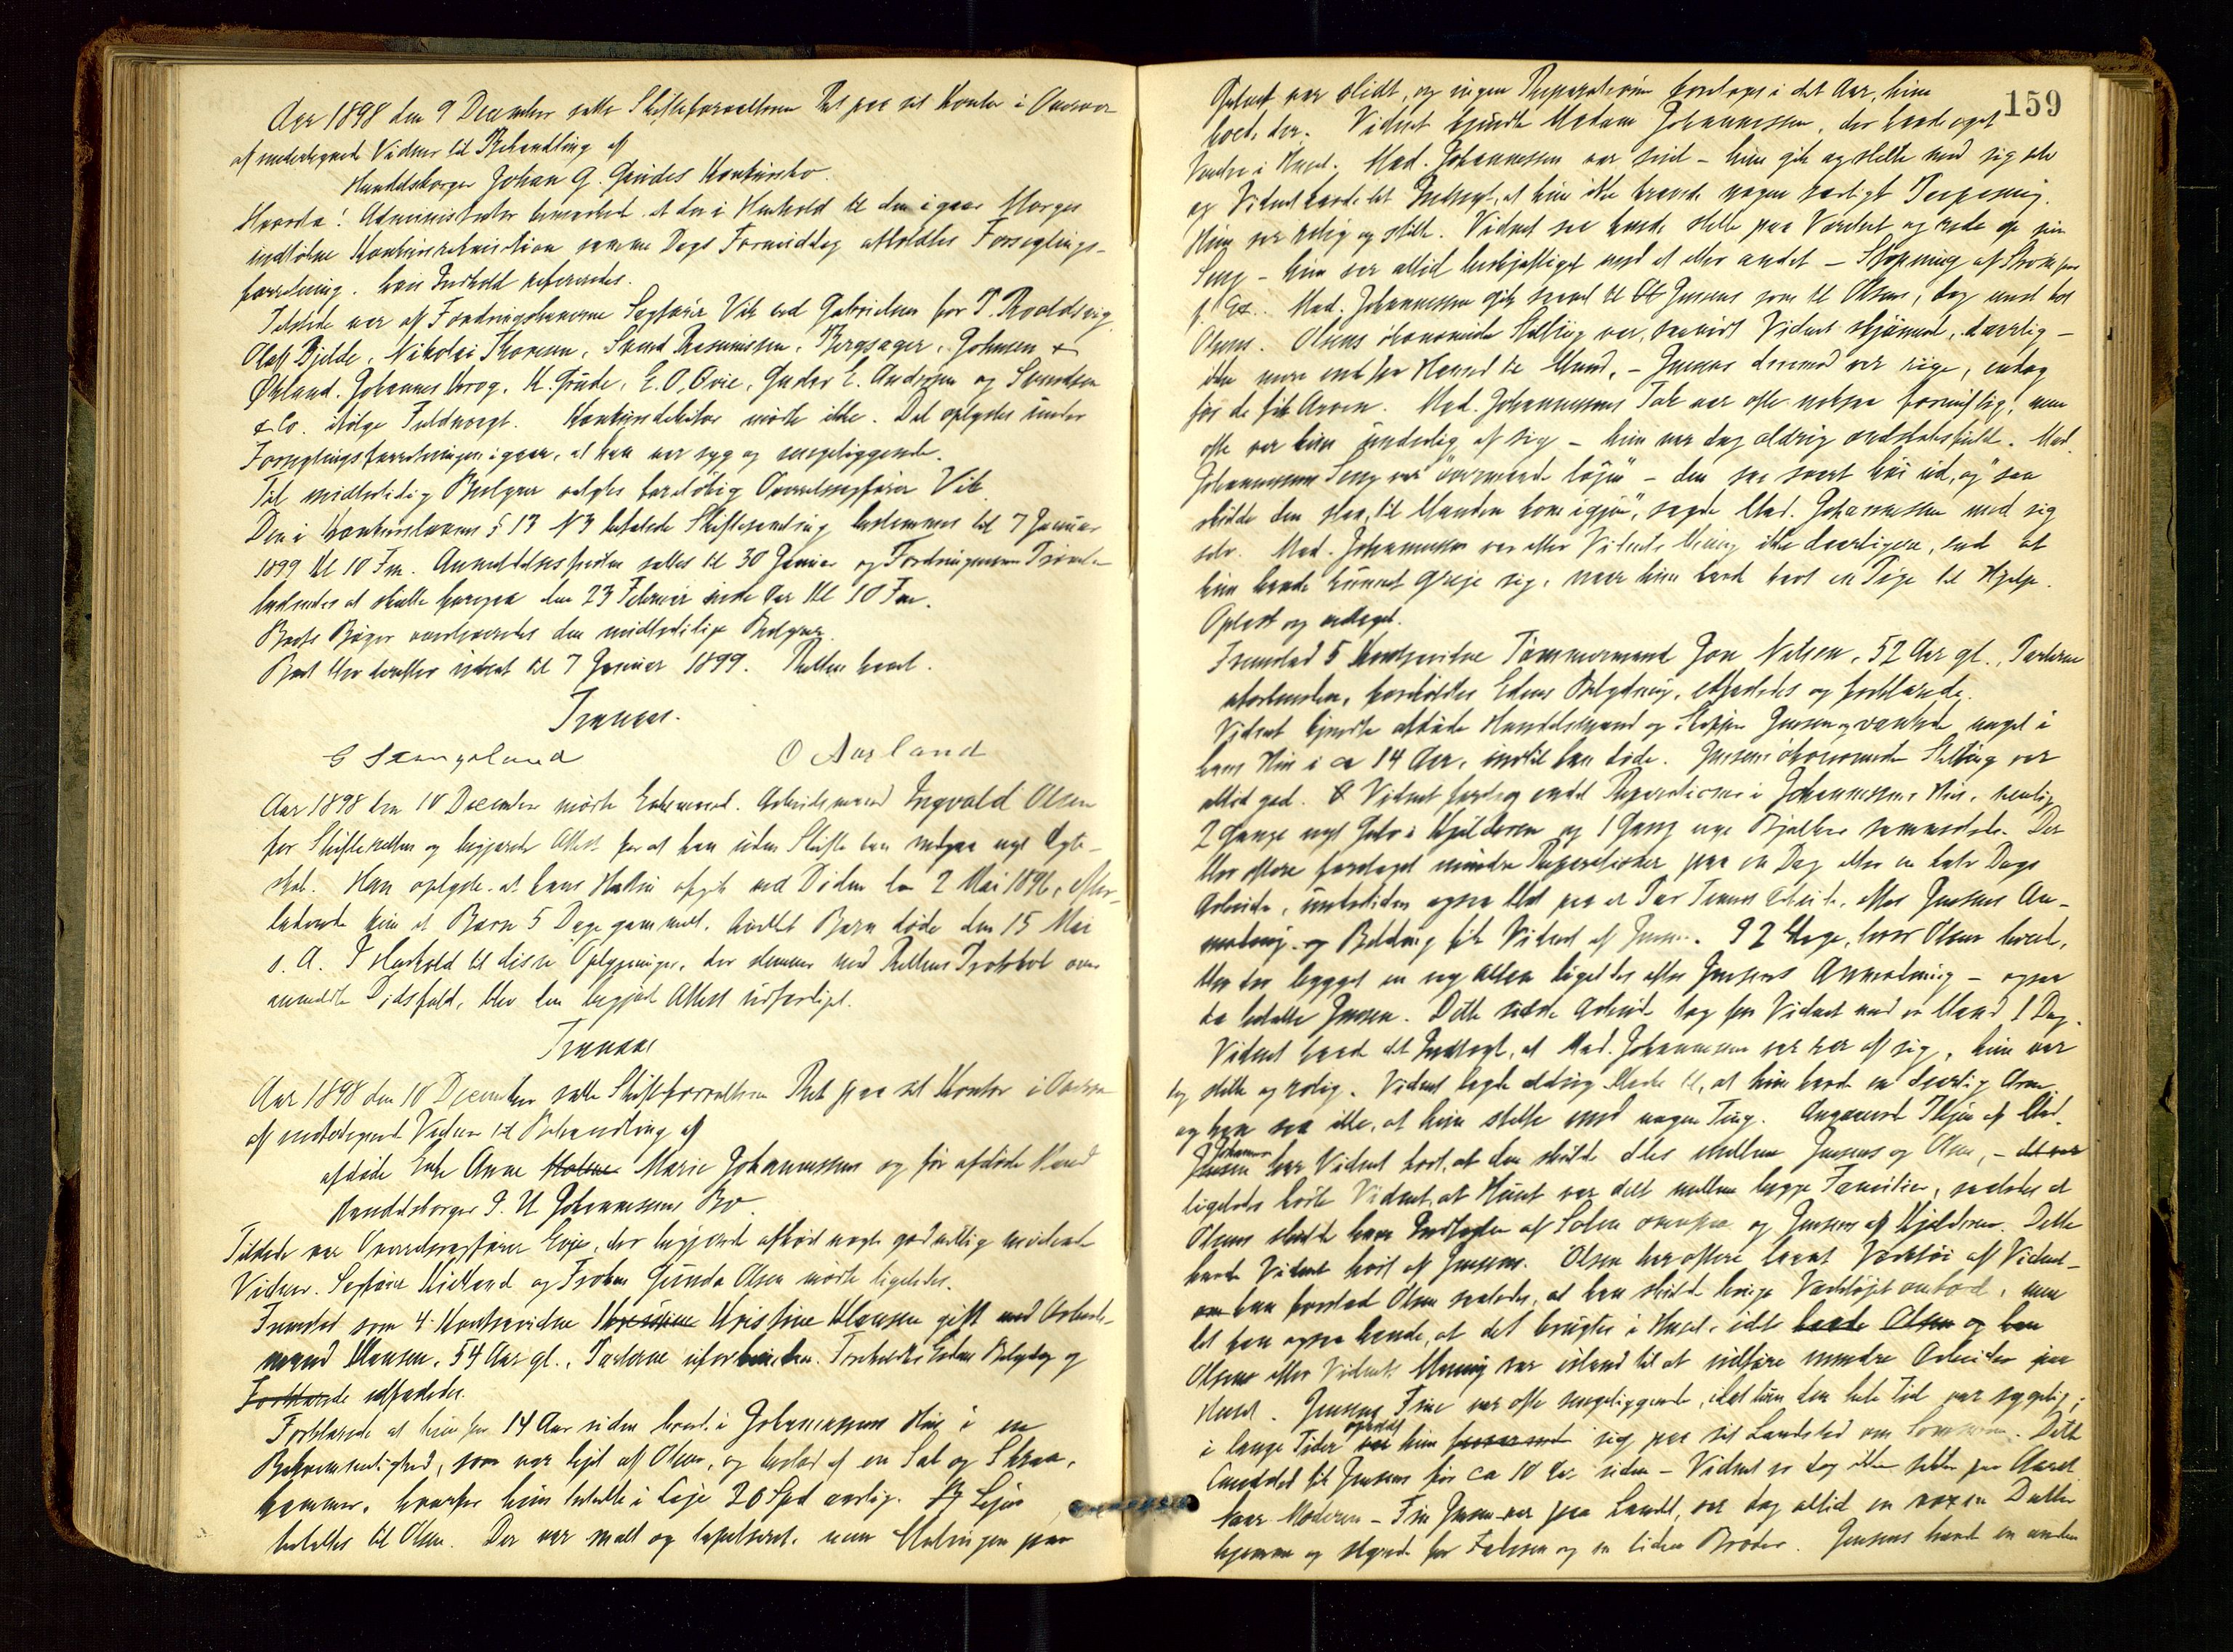 Aar 1898 den 9 December satte Skifteforvalteren Ret paa sit Kontor i Overvær
af undertegnede Vidner til Behandling af
Handelsborger Johan G. Grudes Konkursbo.
Hvorda! Administrator bemærkede at der i Henhold til den igaar Morges
indkomne Konkursrekvisition samme Dags Formiddag afholdtes Forseglings-
forretning. hvis Indhold refereredes.
Tilstede var af Fordringshaverne Sagfører Vik ved Gabrielsen for T. Roaldsvig
Olaf Djelde, Nikolai Thorsen, Svend Rasmussen, Bergsager, Johnsen &
Økland. Johannes Krog. K. Grude, E. O. Ovie, Gudor E. Andersen og Svendsen
& Co. ifølge Fuldmagt. Konkursdebitor mødte ikke. Det oplystes under
Forseglingsforretningen igaar, at han var syg og sengeliggende.
Til midlertidig Bestyrer valgtes foreløbig Overretssagfører Vik
Den i Konkurslovens § 13 N 3 befalede Skiftesamling bestemmes til 7 Januar
1899 Kl 10 Fm. Anmeldelsesfristen sattes til 30 Januar og Fordringernes Prøvelse
berammedes at skulle foregaa den 23 Februar næste Aar Kl 10 Fm.
Boets Bøger overleveredes den midlertidige Bestyrer.
Boet blev derefter udsat til 7 Januar 1899. Retten hævet.
Tranaas.
G Stangeland O Aarland
Aar 1898 den 10 December mødte Enkemand. Arbeidsmand Ingvald Olsen
for Skifteretten og begjærede Attest for at han uden Skifte kan indgaa nyt Ægte-
skab. Han oplyste at hans Hustru afgik ved Døden den 2 Mai 1896, efter-
ladende kun et Barn 5 Dage gammelt, hvilket Barn døde den 15 Mai
s. A. I Henhold til disse Oplysninger, der stemmer med Rettens Protokol over
anmeldte Dødsfald, blev den begjærte Attest udfærdiget.
Tranaas
Aar 1898 den 10 December satte Skifteforvalteren Ret paa sit Kontor i Overvær
af undertegnede Vidner til Behandling af
afdøde Enke Anne Marie Johannessen og før afdøde Mand
Handelsborger P. U Johannessens Bo.
Tilstede var Overretssagfører Evje, der begjærede afhørt nogle godvillig mødende
Vidner. Sagfører Kielland og Frøken Gunda Olsen mødte ligeledes.
Fremstod som 4. Kontravidne Kristine Klausen gift med Arbeids-
mand Klausen, 54 Aar gl., Parterne uforbunden. Foreholdtes Edens Betydning og
edfæstedes.
Forklarede at hun for 14 Aar siden boede i Johannessens Hus i en
Bekvemmelighed, som var leiet af Olsen, og bestod af en Sal og Skraa-
kammer, hvorfor hun betalte i Leje 20 Spd aarlig. Lejen
betaltes til Olsen. Der var malt og tapetseret. men Malingen paa
159
Gulvet var slidt, og ingen Reparation foretoges i det Aar, hun
boede der. Vidnet kjendte Madam Johannessen, der havde eget
Værelse i Huset. Mad. Johannessen var snil – hun gik og stelte med sig selv
og Vidnet havde det Indtryk, at hun ikke krævede nogen særligt Terpening.
Hun var rolig og stille. Vidnet saa hende stelle paa Værelset og rede op sin
Seng – hun var altid beskjæftiget med et eller andet – Stopning af Strømper
f. Ex. Mad. Johannessen gik saavel til Jensens som til Olsens, dog mest hos
Olsens. Olsens økonomiske Stilling var, saavidt Vidnet skjønnet, daarlig –
ikke mere end fra Haand til Mund, – Jensens derimod var rige, endog
før de fik Arven. Mad. Johannessens Tale var ofte nokso fornuftig, men
ofte var hun underlig af sig – hun var dog aldrig ondskabsfuld. Mad.
Johannessens Seng var "overmaade løgn" – den saa svært høi ud, og "saa
skulde den staa, til Manden kom igjen", sagde Mad. Johannessen med sig
selv. Mad. Johannessen var efter Vidnets Mening ikke daarligere, end at
hun kunde kunnet greje sig, naar hun havde havt en Pige til Hjelp.
Oplæst og vedtaget.
Fremstod 5 Kontravidne Tømmermand Jon Nilsen, 52 Aar gl., Parterne
uforbunden, foreholdtes Edens Betydning, edfæstedes og forklarede.
Vidnet kjendte afdøde Handelsmand og Skipper Jensen og vankede meget i
hans Hus i ca 14 Aar, indtil han døde. Jensens økonomiske Stilling var
altid god. Vidnet foretog endel Reparationer i Johannessens Hus, nemlig
2 Gange nyt Gulv i Kjelderen og 1 Gang nye Bjelker sammesteds. Der
blev oftere foretaget mindre Reparationer paa en Dag eller en halv Dags
Arbeide, undertiden ogsaa blot paa et Par Timers Arbeide, efter Jensens An-
modning og Betaling fik Vidnet af Jensen. I 2 Etage, hvor Olsens boede,
blev der bygget en ny Altan ligeledes efter Jensens Anmodning – ogsaa
da betalte Jensen. Dette sidste Arbeide tog for Vidnet med en Mand 1 Dag.
Vidnet havde det Indtryk, at Mad. Johannessen var rar af sig, hun var
dog stille og rolig. Vidnet lagde aldrig Mærke til, at hun havde en daarlig Arm,
og han saa ikke, at hun stelte med nogen Ting. Angaaende Plejen af Mad.
Johannes har Vidnet hørt, at den skulde deles mellem Jensens og Olsens, – det var
ligeledes hørte Vidnet, at Huset var delt mellem begge Familier, saaledes at
Olsens skulde have Indtægten af Salen ovenpaa og Jensens af Kjelderen. Dette
havde Vidnet hørt af Jensens. Olsen har oftere laant Værktøi af Vidnet –
han forstod Olsen saaledes, at han skulde bruge Værktøjet ombord, men
det kan ogsaa hænde, at det brugtes i Huset, idet
Olsen efter Vidnets Mening var istand til at udføre mindre Arbeider paa
Huset. Jensens Frue var ofte sengeliggende, idet hun den hele Tid var sygelig;
i lange Tider opholdt hun sig paa sit Landsted om Sommeren. Dette
Landsted fik Jensens for ca 10 Aar siden – Vidnet er dog ikke sikker paa Aaret.
Naar Moderen – Fru Jensen – var paa Landet, var dog altid en voxen Datter
hjemme og styrede for Faderen og en liden Broder. Jensens havde en anden